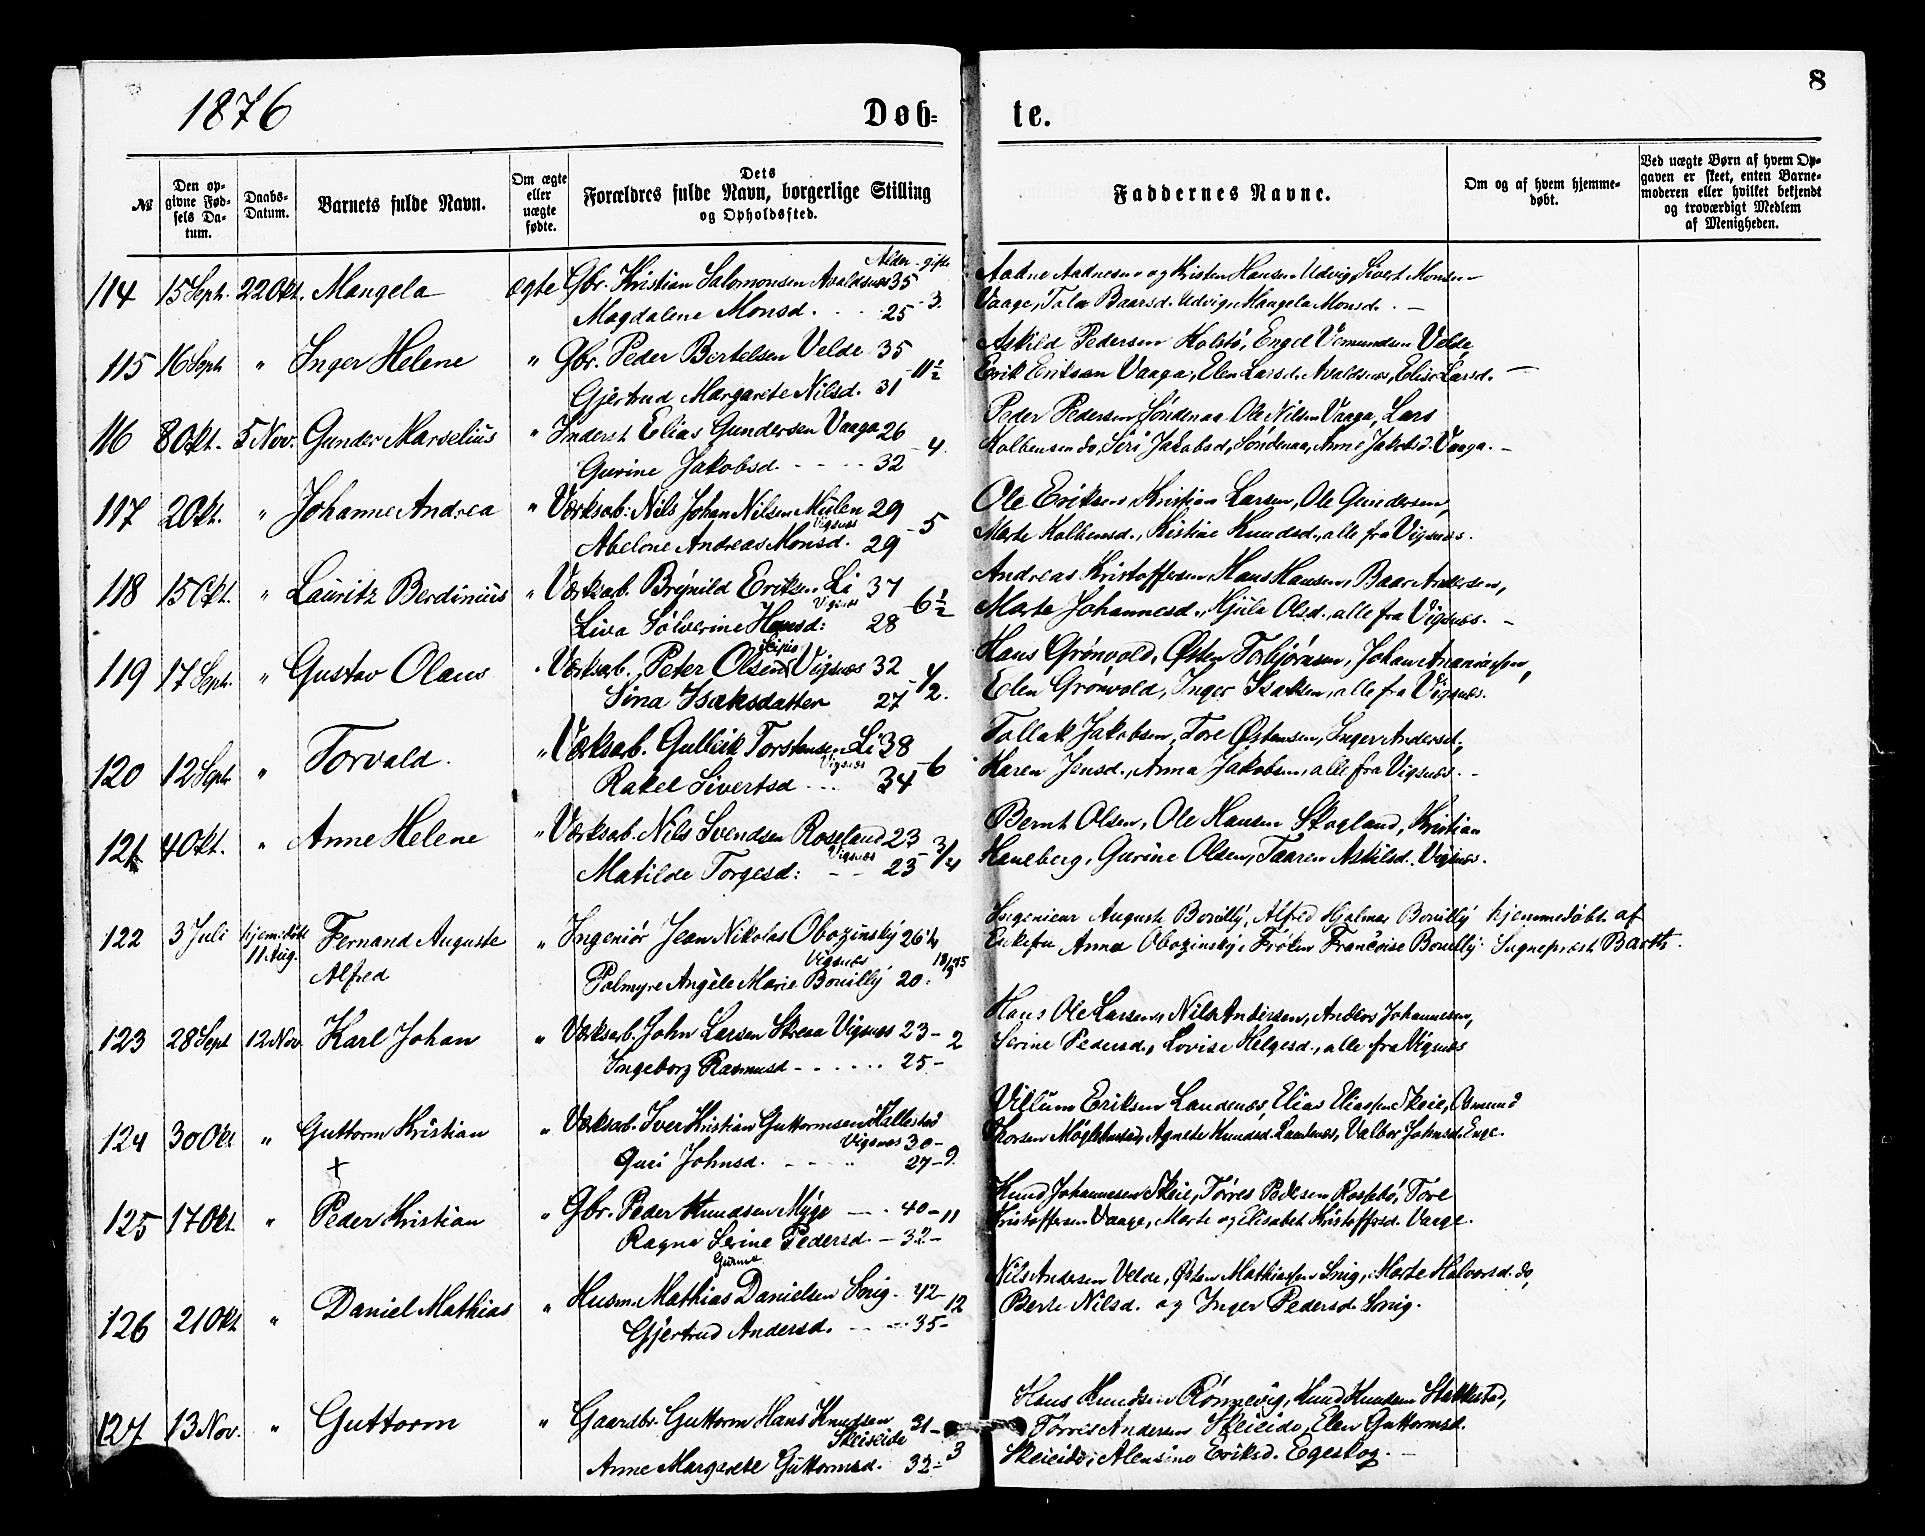 1876
Døb-
te.
8
№
Den op-
givne Fød-
sels Da-
tum.
Daabs-
Datum.
Barnets fulde Navn.
Om ægte
eller
uægte
fødte.
Dets
Forældres fulde Navn, borgerlige Stilling
og Opholdssted.
Faddernes Navne.
Om og af hvem hjemme-
døbt.
Ved uægte Børn af hvem Op-
gaven er skeet, enten Barne-
moderen eller hvilket bekjendt
og troværdigt Medlem
af Menigheden.
Alder gifte
114 15 Sept. 22 Okt. Mangela ægte Gbr. Kristian Salomonsen Avaldsnæs 35
Magdalene Monsd. 25 - 3.
Aadne Aadnesen og Kristen Hansen Udvig, Sivert Monsen
Vaage, Tala Baarsd. Udvig, Mangela Monsd. -
115 16 Sept " Inger Helene " Gbr. Peder Bertelsen Velde 35
Gjertrud Margarete Nilsd. 31 - 11 ½
Askild Pedersen Kolstø, Engel Vemundsen Velde
Erik Eriksen Vaaga, Elen Larsd. Avaldsnæs, Elise Larsd. -
116 8 Okt. 5 Nov. Gunder Marselius " Inderst Elias Gundersen Vaaga 26
Gurine Jakobsd. 32 - 4.
Peder Pedersen Søndenaa Ole Nilsen Vaaga, Lars
Kolbensen do, Siri Jakobsd, Søndenaa, Anne Jakobsd. Vaaga. -
117 2 Okt. " Johanne Andrea " Værksarb: Nils Johan Nilsen Mulen 29
Vigsnæs
Abelone Andreas Monsd. 29 - 5
Ole Eriksen, Kristian Larsen, Ole Gundersen,
Marte Kolbensd., Kistine Knudsd., alle fra Vigsnæs.
118 15 Okt. " Lauritz Berdinius " Værksarb. Brynild Eriksen Li 37
Vigsnæs
Liva Sølverine Hansd: 28 - 6 ½
Andreas Kristoffersen, Hans Hansen, Baar Andersen,
Marta Johannesd., Kjula Olsd., alle fra Vigsnæs. -
119 17 Sept. " Gustav Olaus " Værksarb. Peter Olsen Vigsnæs 32
Sina Isaksdatter 27 - ½.
Hans Grønvold, Østen Torbjørnsen, Johan Ananiassen,
Elen Grønvold, Inger Isaksen, alle fra Vigsnæs.
120 12 Sept " Torvald. " Værksarb. Gulleik Torstensen Li 38
Vigsnæs
Rakel Sivertsd 34 - 6
Tollak Jakobsen, Tore Østensen, Inger Andersd.,
Karen Jensd., Anna Jakobsen, alle fra Vigsnæs. -
121 4 Okt. " Anne Helene " Værksarb. Nils Svendsen Roseland 23
Vigsnæs
Matilde Torgesd: 23 - ¾
Bernt Olsen, Ole Hansen Skogland, Kristian
Haneberg, Gurine Olsen, Taaren Askilsd. Vigsnæs.
122 3 Juli hjemmedøbt Fernand Auguste " Ingeniør Jean Nikolas Obozinský 26 ½
11 Aug. Alfred Vigsnæs
Palmyre Angèle Marie Bouillÿ 20.
Ingenieur Auguste Bouillÿ, Alfred Hjalmar Bouillÿ hjemmedøbt af
Enkefru Anna Obozinský, Frøken Francoise Bouillÿ. Sognepræst Barth.
123 28 Sept 12 Nov Karl Johan " Værksarb. John Larsen Skreaa Vigsnæs 23 -
Ingeborg Rasmusd 25 - 2
Hans Ole Larsen, Nils Andersen, Andreas Johannesen,
Serine Pedersd., Lovise Helgesd., alle fra Vigsnæs
124 30 Okt " Guttorm Kristian " Værksarb. Iver Kristian Guttormsen Hallestad
Vigsnæs 30 -
Guri Johnsd. 27 - 9.
Villum Eriksen Landenæs, Elias Eliassen Skeie, Osmund
Thorsen Møglebustad, Agnete Knudsd. Landenæs, Valbor Johnsd. Enge.
+
125 17 Okt. " Peder Kristian " Gbr. Peder Knudsen Myge 40 - 11
Ragna Serine Pedersd. - 32 -
Gurine
Knud Johannesen Skeie, Tørres Pedersen Rossebø, Tore
Kristoffersen Vaage, Marte og Elisabet Kristoffersd. Vaage.
126 21 Okt " Daniel Mathias " Husm. Mathias Danielsen Snig. 42 - 12
Gjertrud Andersd. 35 -
Nils Andersen Velde, Østen Mathiassen Snig, Marte Halvorsd. do,
Berte Nilsd. og Inger Pedersd. Snig.
127 13 Nov. " Guttorm " Gaardbr. Guttorm Hans Knudsen 31 -
Skeiseide
Anne Margarete Guttormsd. 32 - 3
Hans Knudsen Rønnevig, Knud Knudsen Stakkestad,
Tørris Andersen Skeieide, Elen Guttormsd.
Skeieide, Alensine Eriksd. Egeskog. -